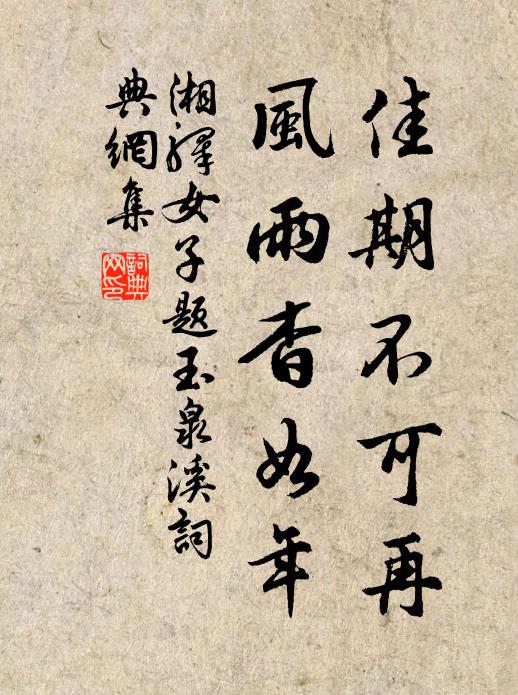 佳期不可再
風雨杳如年
湘驛女子題玉泉溪詞
典網集
詞典
网印